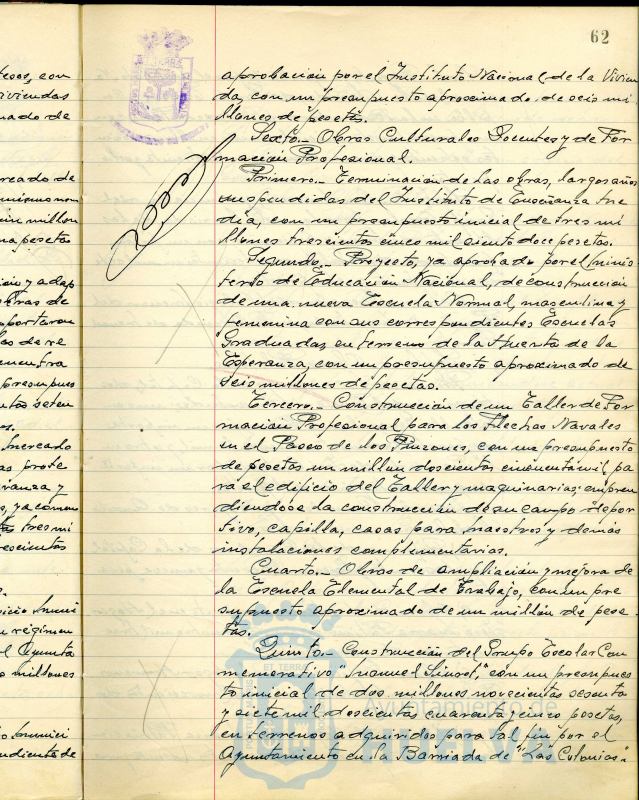 62
aprobación por el Instituto Nacional de la Vivien
da, con un presupuesto aproximado de seis mi
llones de pesetas.
Sexto.- Obras Culturales Docentes y de For
mación Profesional.
Primero.- Terminación de las obras, largos años
suspendidas del Instituto de Enseñanza Me
dia, con un presupuesto inicial de tres mi
llones trescientos cinco mil ciento doce pesetas.
Segundo.- Proyecto, ya aprobado por el Minis
terio de Educación Nacional, de construcción
de una nueva Escuela Normal, masculina y
femenina con sus correspondientes Escuelas
Graduadas, en terreno de la Huerta de la
Esperanza, con un presupuesto aproximado de
seis millones de pesetas.
Tercero.- Construcción de un Taller de For
mación Profesional para los Flechas Navales
en el Paseo de los Pinzones, con un presupuesto
de pesetas un millón doscientas cincuenta mil, pa
ra el edificio del Taller y maquinarias; empren
diendose la construcción de su campo depor
tivo, capilla, casas para maestros y demás
instalaciones complementarias.
Cuarto.- Obras de ampliación y mejora de
la Escuela Elemental de Trabajo, con un pre
supuesto aproximado de un millón de pese
tas.
Quinto.- Construcción del Grupo Escolar Con
memorativo "Manuel Siurot", con un presupues
to inicial de dos millones novecientas sesenta
y siete mil doscientas cuarenta y cinco pesetas,
en terrenos adquiridos para tal fin por el
Ayuntamiento en la Barriada de "Las Colonias".
Ayuntamiento de
Huelva
tesos, con
viviendas
mado de
ercado de
in millon
na pesetas
ción y adap
obras de
portaron
las de re
cuentra
presupues
Mercado
as prote
ranza y
s, ya comen
tres mi
rescientas
n régimen
l Ayunta
o millones
ndiente de